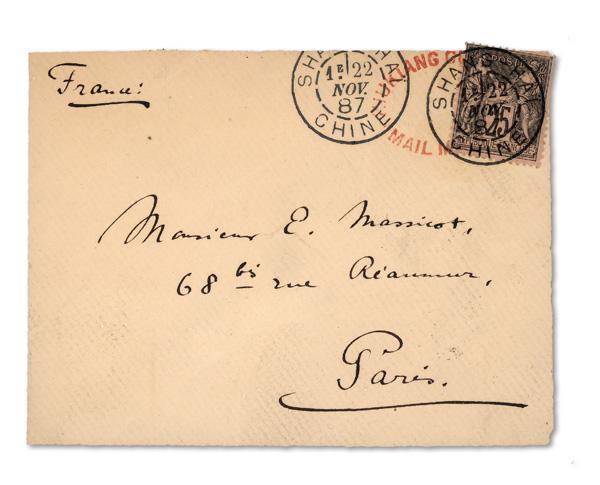 France:
SHANG-HAI
1E 22
NOV.
87
CHINE
MAIL
SHANG-HAI
22
NOV.
87
CHINE
25
Monsieur E. Massicot,
68 bis rue Réaumur,
Paris.